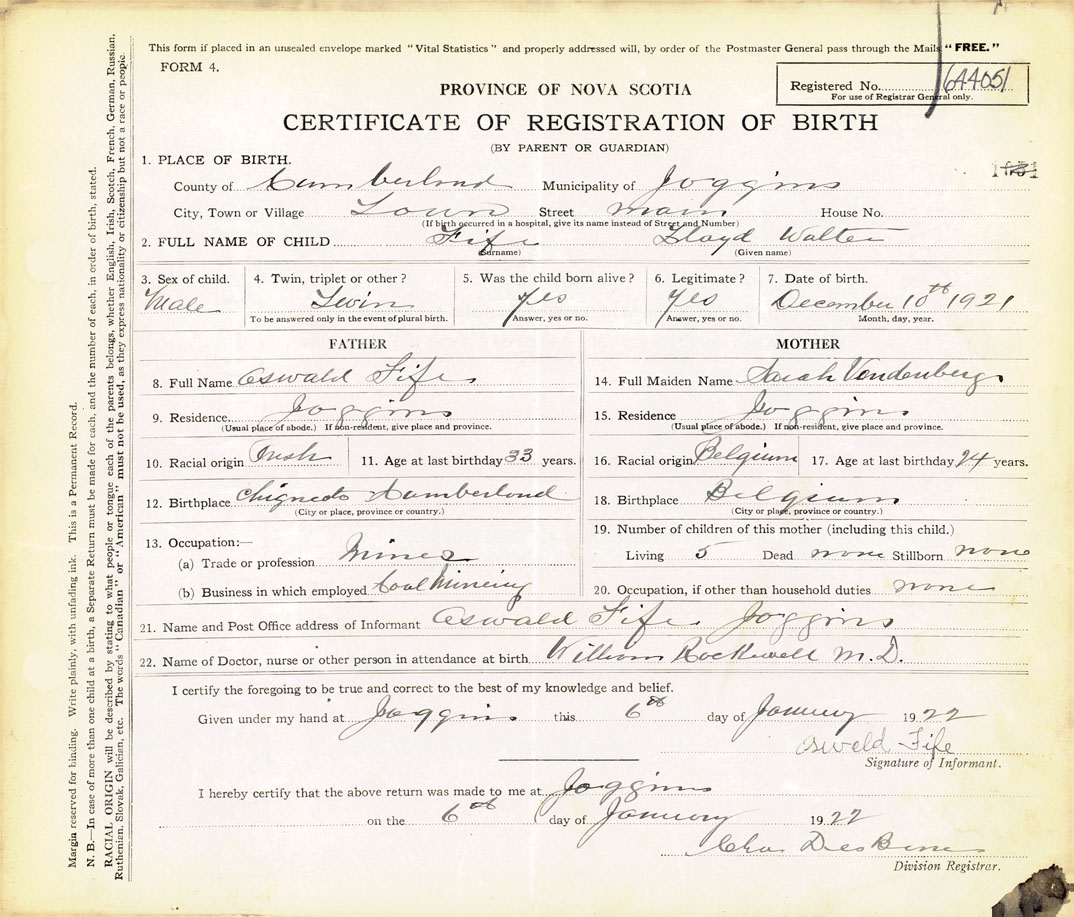 This form if placed in an unsealed envelope marked "Vital Statistics" and properly addressed will, by order of the Postmaster General pass through the Mails "FREE."
FORM 4.
Registered No. 644051
For use of Registrar General only.
PROVINCE OF NOVA SCOTIA
CERTIFICATE OF REGISTRATION OF BIRTH
(BY PARENT OR GUARDIAN)
1. PLACE OF BIRTH.
County of Cumberland Municipality of Joggins
City, Town or Village Town Street main House No.
(If birth occurred in a hospital, give its name instead of Street and Number)
2. FULL NAME OF CHILD Fife Lloyd Walter
(Surname) (Given name)
3. Sex of child. 4. Twin, triplet or other? 5. Was the child born alive? 6. Legitimate? 7. Date of birth.
Male Twin Yes Yes December 10th 1921
To be answered only in the event of plural birth. Answer, yes or no. Answer, yes or no. Month, day, year.
FATHER
8. Full Name Oswald Fife
9. Residence Joggins
(Usual place of abode.) If non-resident, give place and province.
10. Racial origin Irish 11. Age at last birthday 33 years.
12. Birthplace Chignecto Cumberland
(City or place, province or country.)
13. Occupation:—
(a) Trade or profession Miner
(b) Business in which employed Coal Mineing
MOTHER
14. Full Maiden Name Sarah Vandenberg
15. Residence Joggins
(Usual place of abode.) If non-resident, give place and province.
16. Racial origin Belgium 17. Age at last birthday 24 years.
18. Birthplace Belgium
(City or place, province or country.)
19. Number of children of this mother (including this child.)
Living 5 Dead none Stillborn none
20. Occupation, if other than household duties none
21. Name and Post Office address of Informant Oswald Fife Joggins
22. Name of Doctor, nurse or other person in attendance at birth William Rockwell M.D.
I certify the foregoing to be true and correct to the best of my knowledge and belief.
Given under my hand at Joggins this 6th day of January 1922
Osweld Fife
Signature of Informant.
I hereby certify that the above return was made to me at Joggins
on the 6th day of January 1922
Chas
Division Registrar.
Margin reserved for binding. Write plainly, with unfading ink. This is a Permanent Record.
N. B.—In case of more than one child at a birth, a Separate Return must be made for each, and the number of each, in order of birth, stated.
RACIAL ORIGIN will be described by stating to what people or tongue each of the parents belongs, whether English, Irish, Scotch, French, German, Russian,
Ruthenian, Slovak, Galician, etc. The words "Canadian" or "American" must not be used, as they express nationality or citizenship but not a race or people